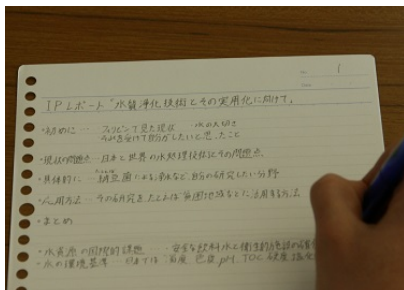 1
IPレポート "水質浄化技術とその実用化に向けて。
・初めに… フィリピンで見た現状 水の大切さ
それを受けて自分がしたいと思ったこと
・現状の問題点 - 日本と世界の水処理技術とその問題点。
・具体的に - 納豆菌による、など、自分の研究したい分野
・応用方法 - その研究をたとえば貧困地域などに活用する方法
・まとめ
・水資源の国際的課題 安全な飲料水と衛生的な施設の
・水の環境基準 - 日本では 濁度 色度、pH、TOC 硬度